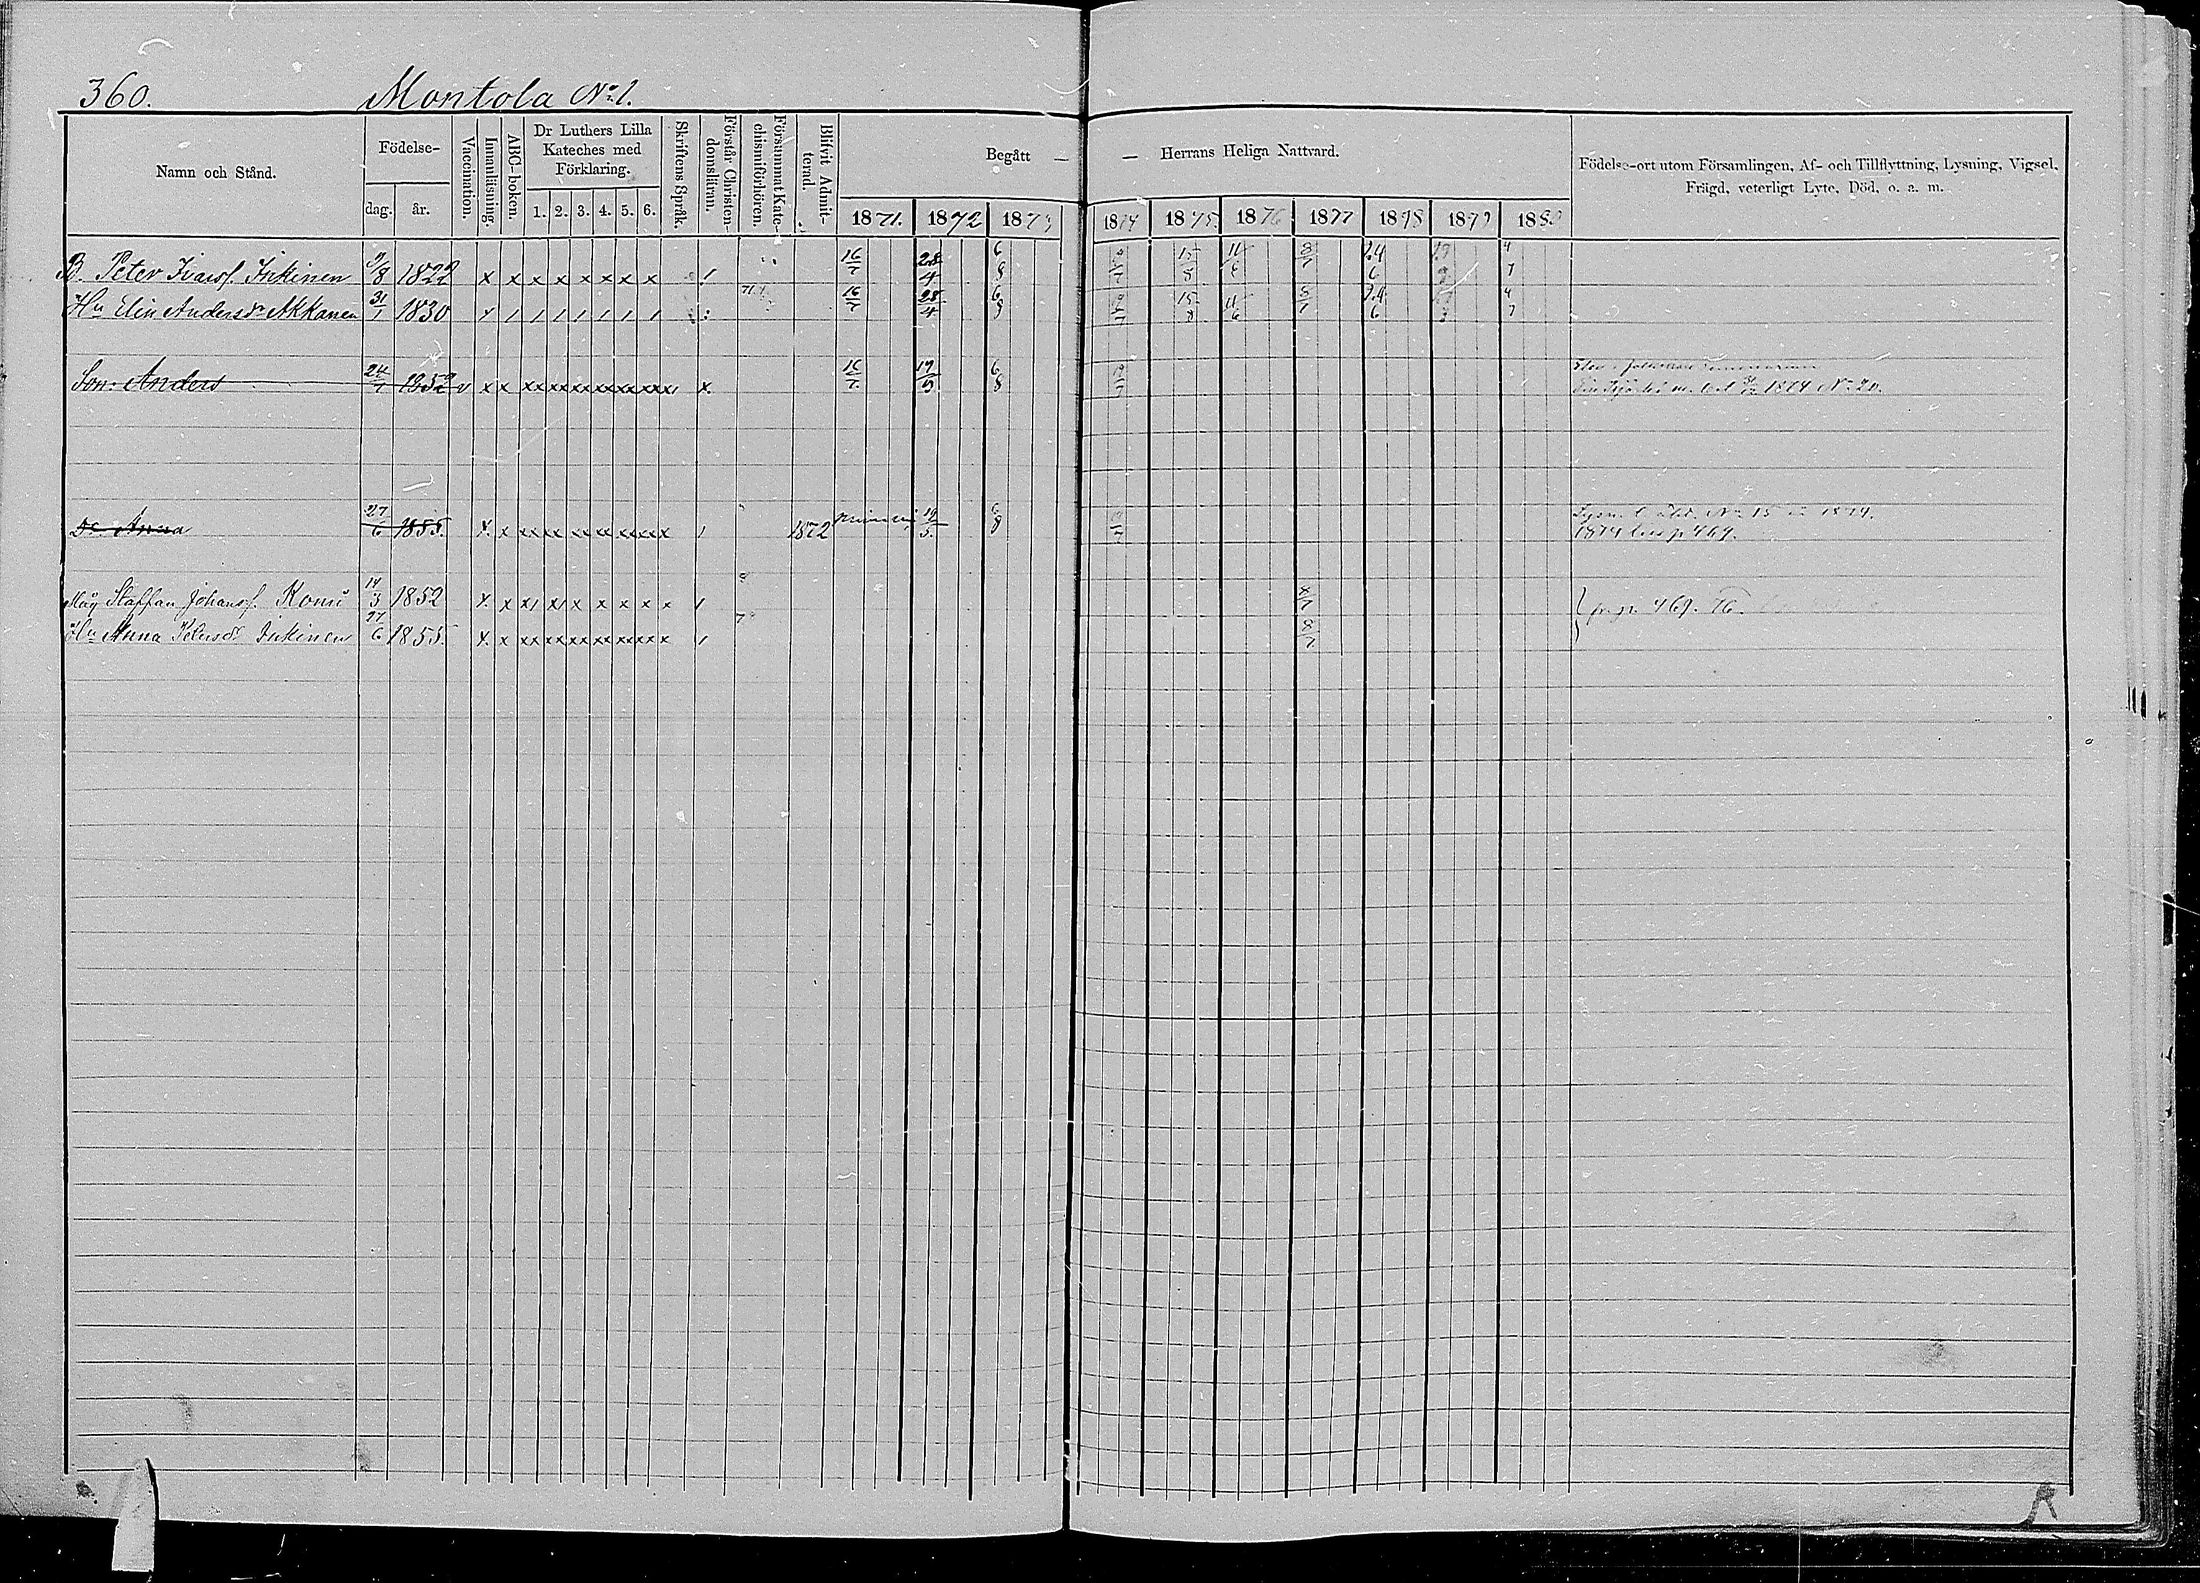 360. Montola No 1.
Namn och Stånd.
Födelse-
dag. år.
Vaccination.
Innanläsning.
ABC-boken.
Dr Luthers Lilla
Kateches med
Förklaring.
1. 2. 3. 4. 5. 6.
Skriftens Språk.
Förstår Christen-
domsläran.
Försummat Kate-
chismiförhören.
Blifvit Admit-
terad.
Begått — — Herrans Heliga Nattvard.
1871. 1872 1873 1874 1875. 1876 1877 1878 1879 1880
Födelse-ort utom Församlingen, Af- och Tillflyttning, Lysning, Vigsel,
Frägd, veterligt Lyte, Död, o. a. m.
B. Peter Inkinen 9/8 1822 x x x x x x x x 16/7 28/4 6/8 15/8 11/6 8/7 24/6 4/7
Hu Elin Andersdr Akkanen 31/1 1830 16/7 28/4 6/8 15/8 11/6 8/7 24/6 4/7
Son Anders 24/1 1852 x x xx xx xx xx xx xx x 16/7 6/8
1874 No 20.
Dr Anna 27/6 1855. x x xx xx xx xx xx xx 1872 6/8
No 15 1874.
1874 p 469.
Måg Staffan Johansf. Komi 14/3 1852 x x x x x x x x 8/7
fr. p. 469. 76.
Hu Anna Petersdr Inkinen 27/6 1855. x x xx xx xx xx xx xx 8/7